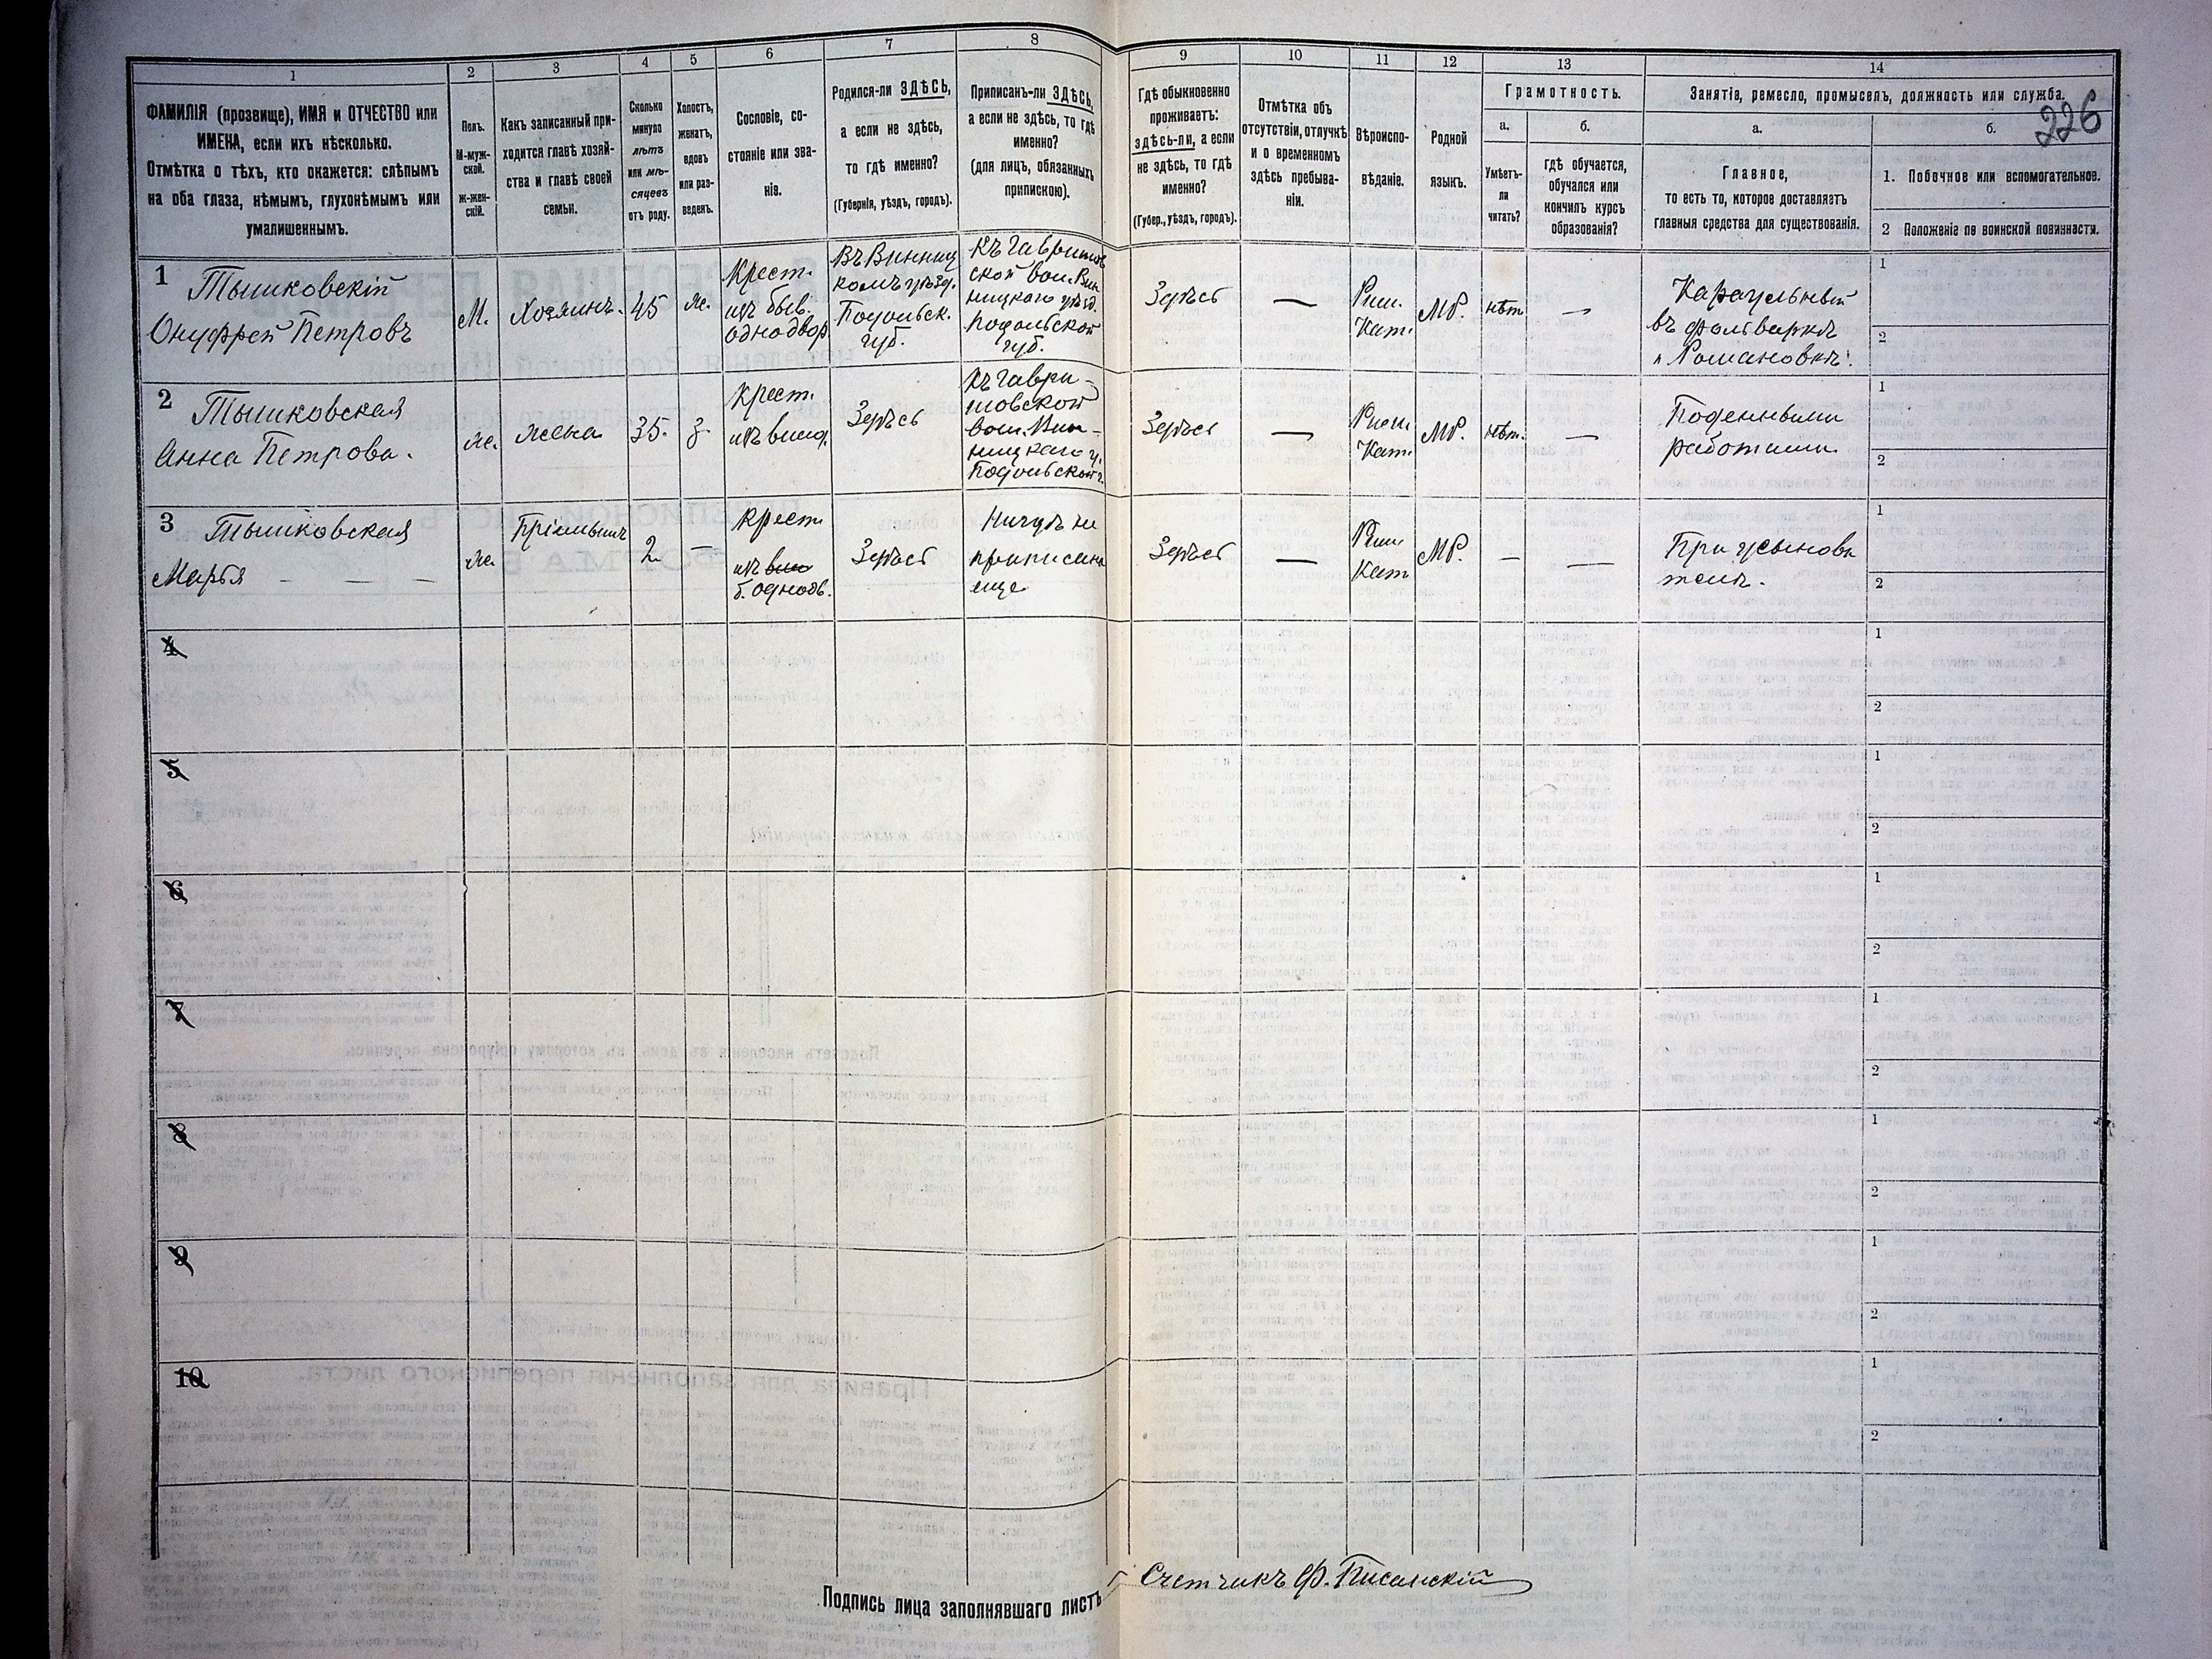 1
2
3
4
5
6
7
8
9
10
11
12
13
14
ФАМИЛІЯ (прозвище), ИМЯ и ОТЧЕСТВО или
ИМЕНА, если ихъ нѣсколько.
Отмѣтка о тѣхъ, кто окажется: слѣпымъ
на оба глаза, нѣмымъ, глухонѣмымъ или
умалишеннымъ.
Полъ.
М-муж-
ской.
Ж-жен-
скій.
Какъ записанный при-
ходится главѣ хозяй-
ства и главѣ своей
семьи.
Сколько
минуло
лѣтъ
или мѣ-
сяцевъ
отъ роду.
Холостъ,
женатъ,
вдовъ
или раз-
веденъ.
Сословіе, со-
стояніе или зва-
ніе.
Родился-ли ЗДѢСЬ,
а если не здѣсь,
то гдѣ именно?
(Губернія, уѣздъ, городъ).
Приписанъ-ли ЗДѢСЬ,
а если не здѣсь, то гдѣ
именно?
(для лицъ, обязанныхъ
припискою).
Гдѣ обыкновенно
проживаетъ:
здѣсь-ли, а если
не здѣсь, то гдѣ
именно?
(Губер., уѣздъ, городъ).
Отмѣтка объ
отсутствіи, отлучкѣ
и о временномъ
здѣсь пребыва-
ніи.
Вѣроиспо-
вѣданіе.
Родной
языкъ.
Грамотность.
а.
Умѣетъ-
ли
читать?
б.
гдѣ обучается,
обучался или
кончилъ курсъ
образованія?
Занятіе, ремесло, промыселъ, должность или служба.
226
а.
Главное,
то есть то, которое доставляетъ
главныя средства для существованія.
б.
1. Побочное или вспомогательное.
2 Положеніе по воинской повинности.
1 Тышковскій
Онуфрей Петровъ
М.
Хозяинъ.
45
ж.
Крест.
изъ быв.
однодвор.
Въ Винниц
комъ уѣзд.
Подольск.
губ.
Къ Гавришов
ской вол. Вин
ницкаго уѣзд.
Подольской
губ.
Здѣсь
—
Рим.
Кат.
МР.
нѣт
—
Караульный
въ фольваркѣ
„Романовкѣ“
1
2
2 Тышковская
Анна Петрова.
ж.
жена
35.
з.
Крест.
Здѣсь
Къ Гаври-
шовской
вол. Вин-
ницкаго у.
Подольской г.
Здѣсь
—
Рим.
Кат.
МР.
нѣт.
—
Поденными
работами
1
2
3 Тышковская
Марья — — —
ж.
2
—
Крест.
изъ
б. однодв.
Здѣсь
Нигдѣ не
приписана
еще
Здѣсь
—
Рим
Кат
МР.
—
—
При усынови
телѣ.
1
2
4
1
2
5
1
2
6
1
2
7
1
2
8
1
2
9
1
2
10
1
2
Подпись лица заполнявшаго листъ
Счетчикъ Ф.